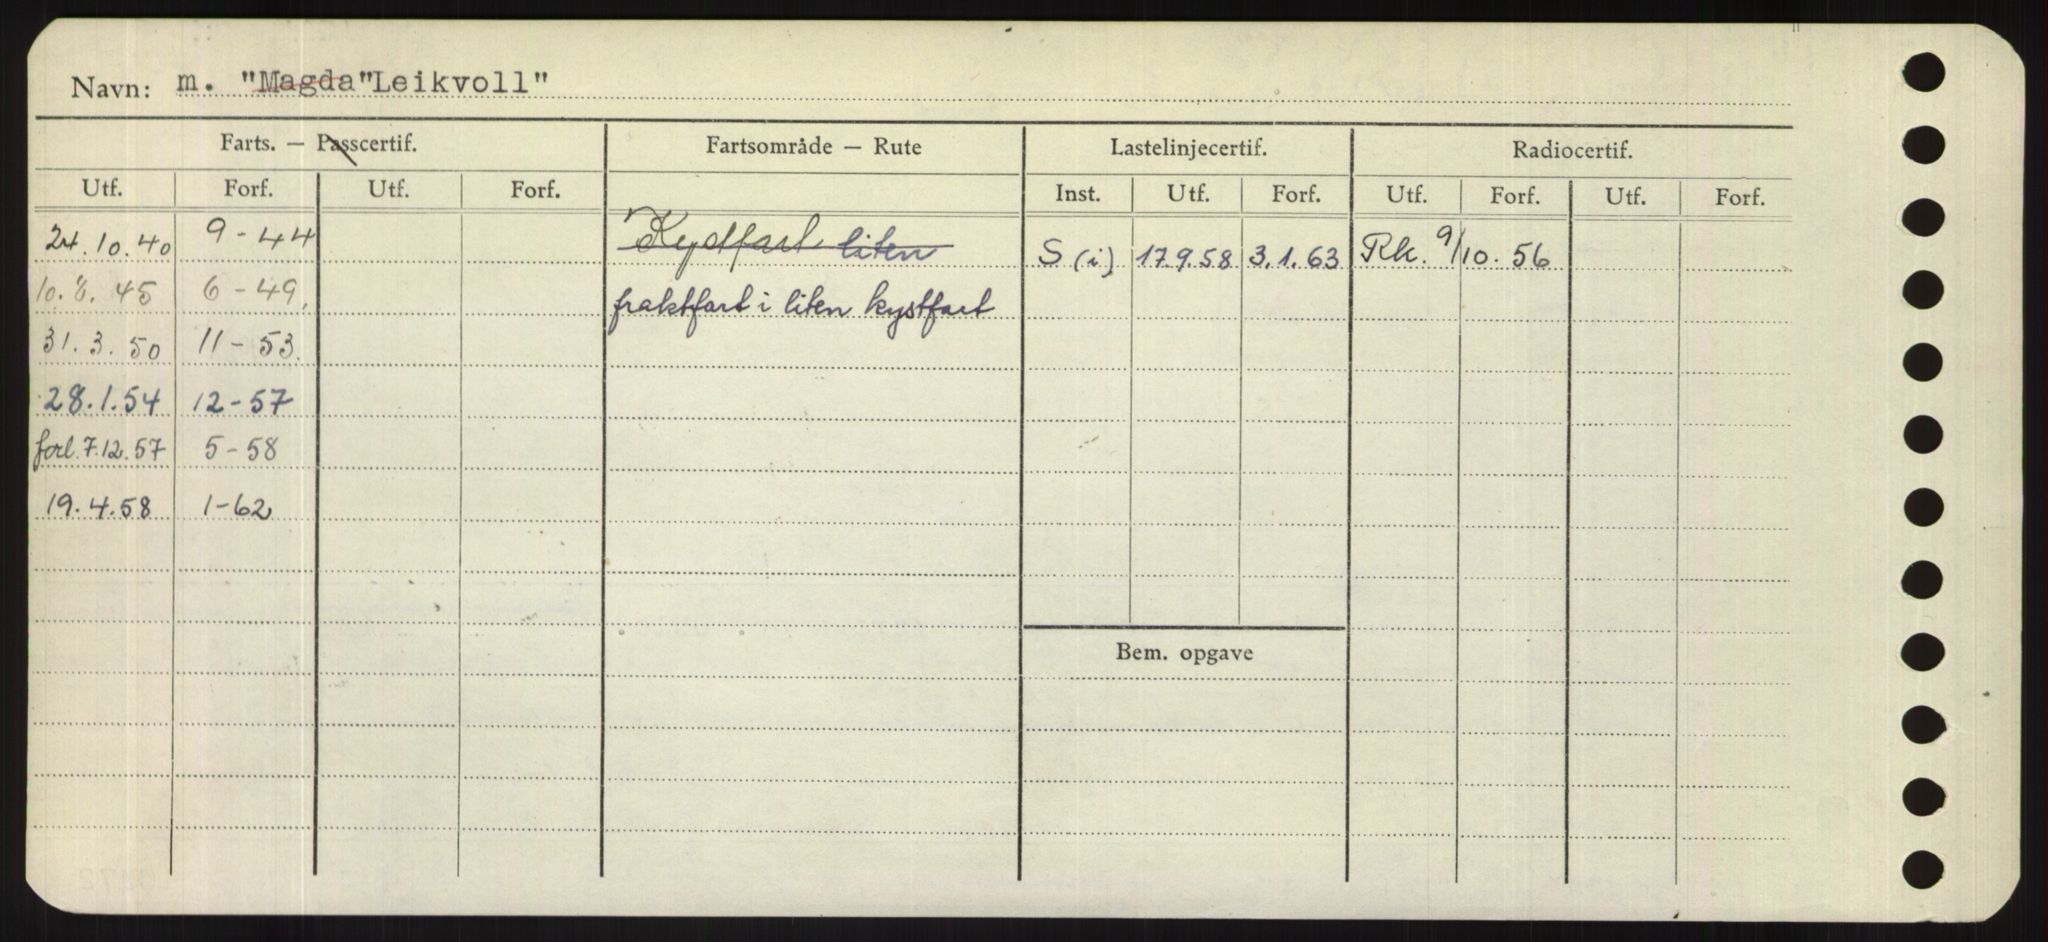 Navn: m. "Magda"Leikvoll"
Farts. — Passcertif. Fartsområde — Rute Lastelinjecertif. Radiocertif.
Utf. Forf. Utf. Forf. Inst. Utf. Forf. Utf. Forf. Utf. Forf.
24.10.40 9-44 Kystfart liten S (i) 17.9.58 3.1.63 Rk. 9/10.56
10.8.45 6-49, fraktfart i liten kystfart
31.3.50 11-53
28.1.54 12-57
forl. 7.12.57 5-58
19.4.58 1-62
Bem. opgave